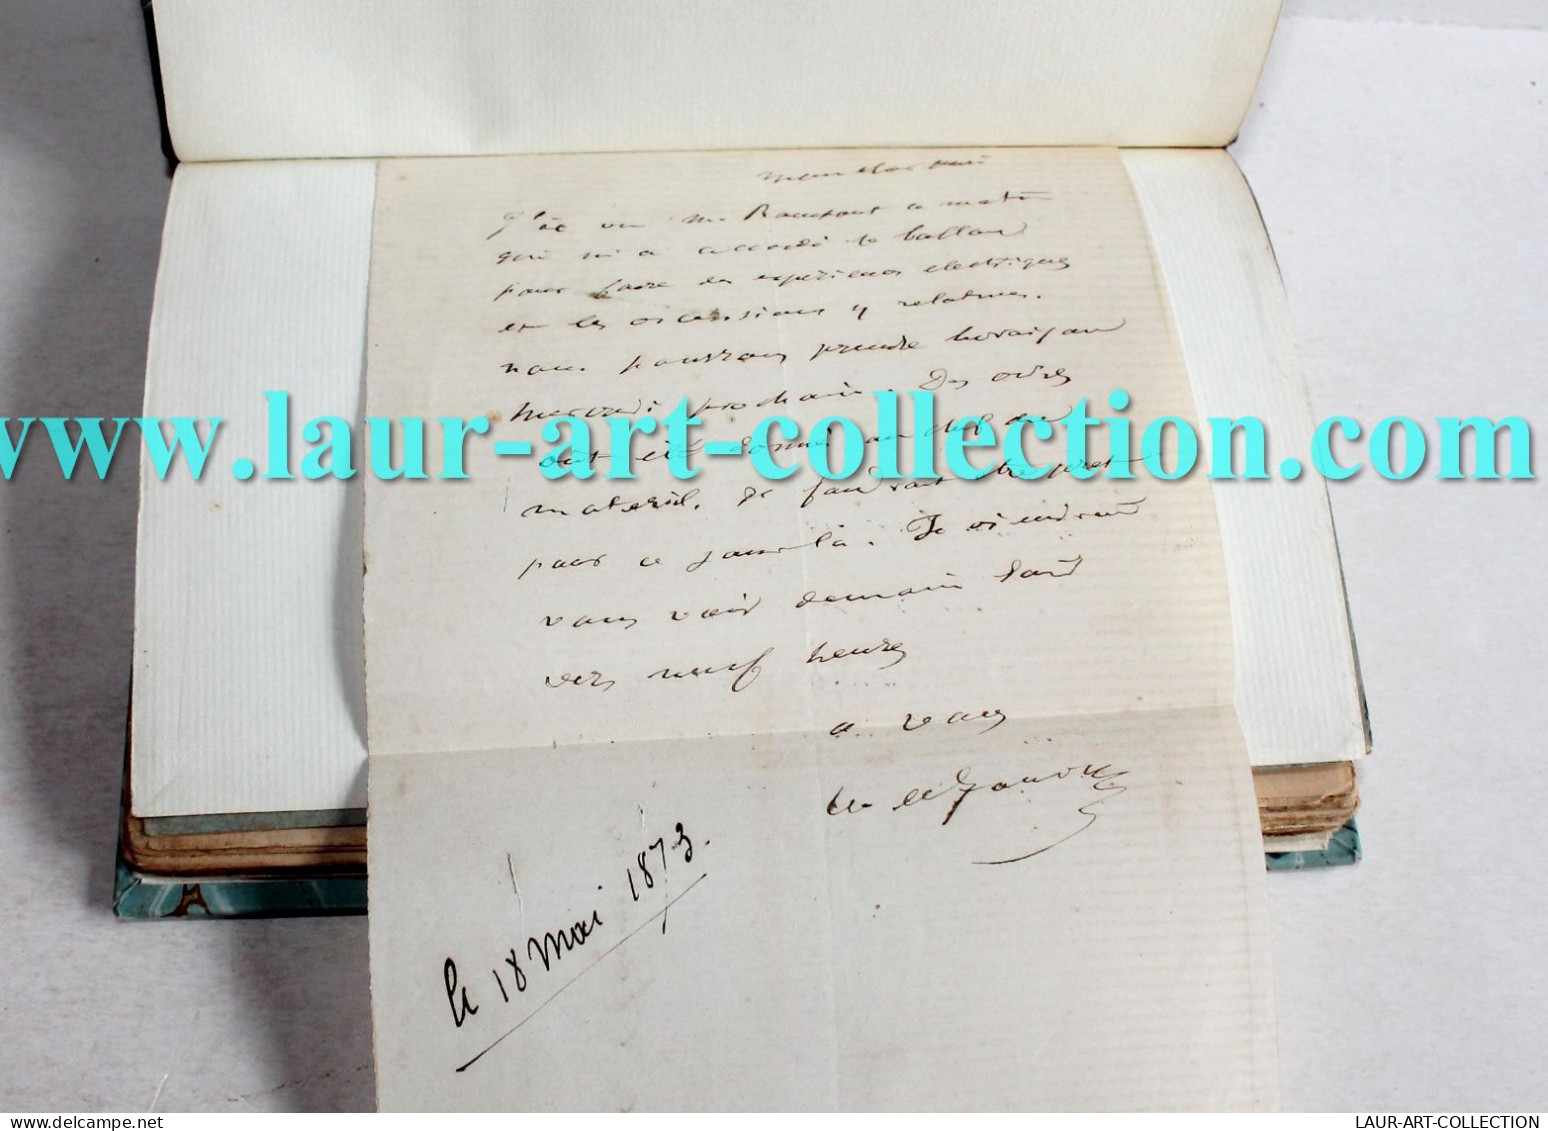 Mon cher ami
J'ai vu Mr Rampont ce matin
qui m'a accordé le ballon
pour faire des expériences electriques
et les ascensions y relatives.
nous pourrons prendre livraison
mercredi prochain. Des ordres
ont été donné au chef du
materiel. Il faudrait être pret
pour ce jour là. Je viendrai
vous voir demain soir
vers neuf heures
a vous
le 18 mai 1873.
www.laur-art-collection.com
www.delcampe.net
LAUR-ART-COLLECTION